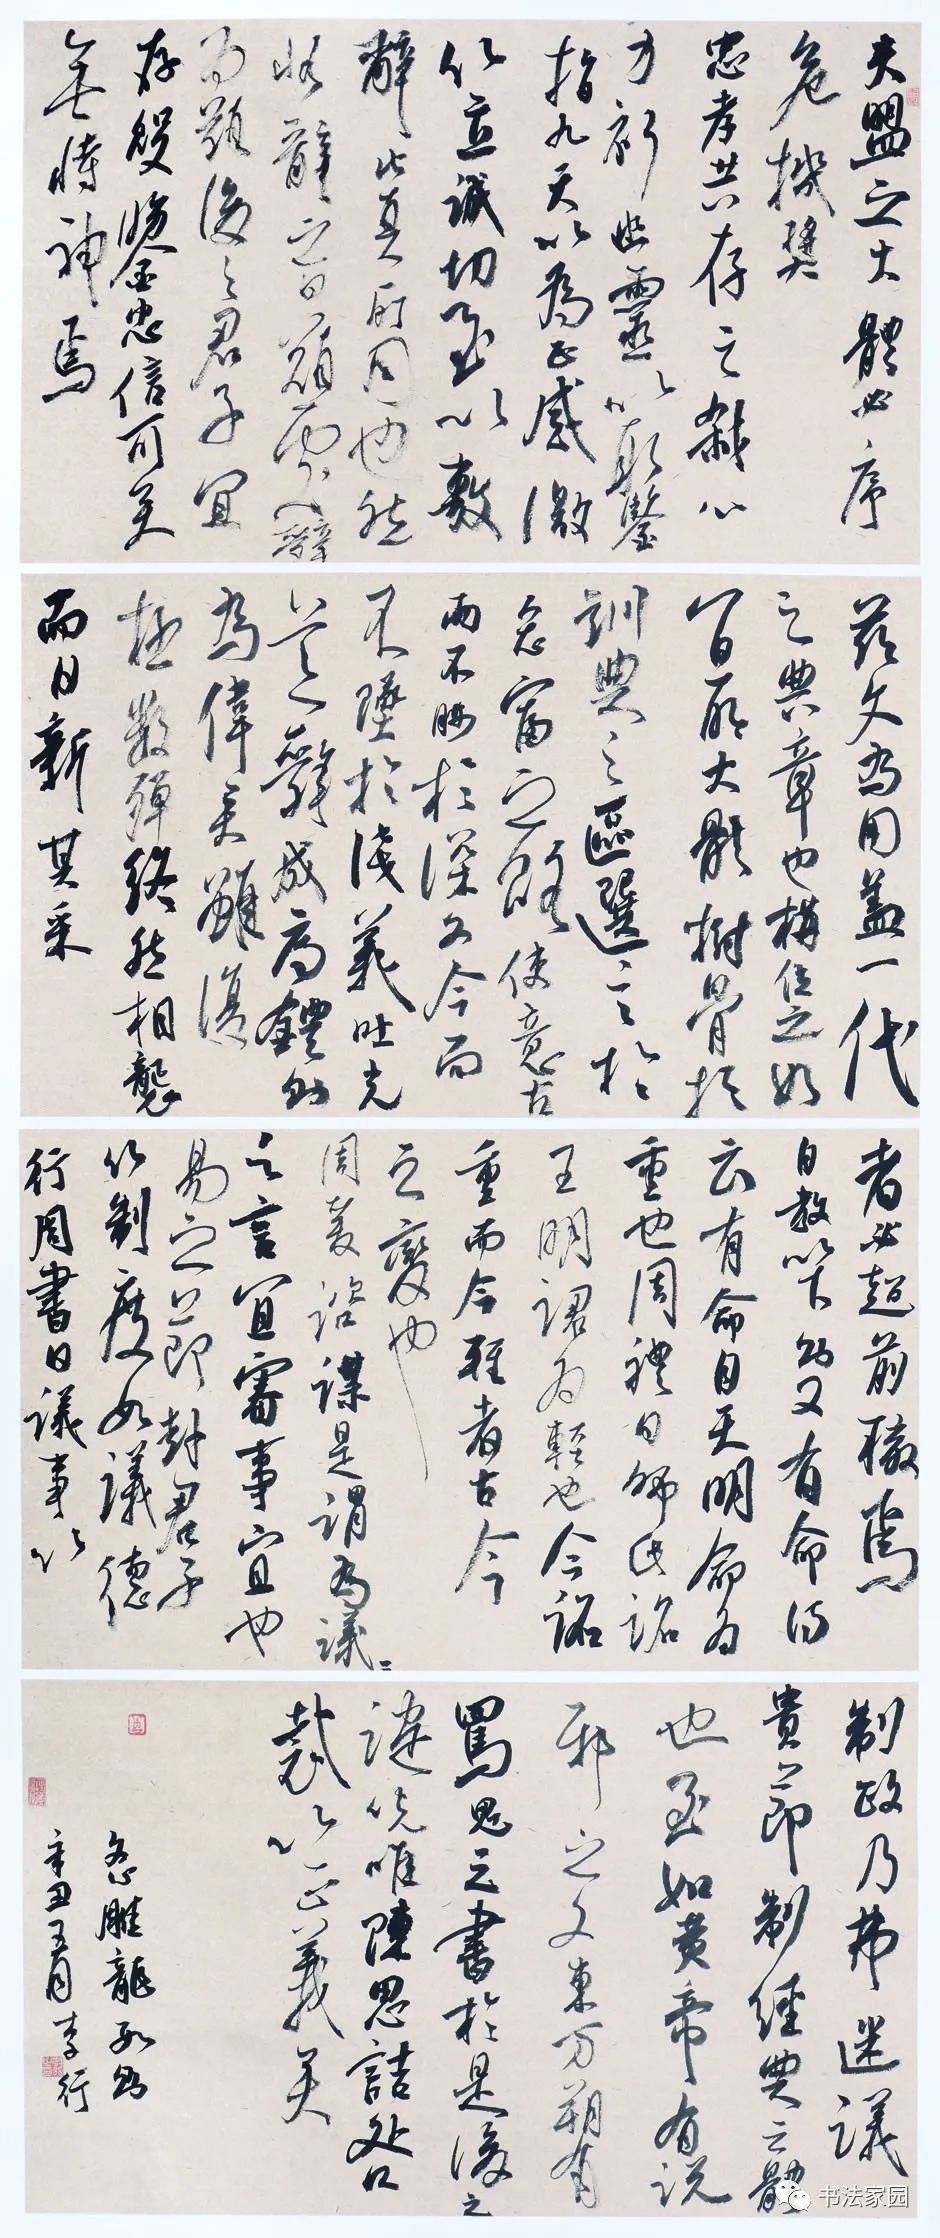 夫盟之大體必序
危機獎
忠孝共存亡戮心
力祈幽靈以取鑒
指九天以為正感激
以立誠切至以敷
辭此其所同也然
非辭之難處辭
為難後之君子宜
存殷鑒忠信可矣
無恃神焉
茲文為用蓋一代
之典章也構位之始
宜明大體樹骨於
訓典之區選言於
宏富之路使意古
而不晦於深文今而
不墜於淺義吐光
芒辭成廉鍔則
為偉矣雖復
極數殫終然相襲
而日新其采
者必超前轍焉
自教以下則又有命詩
云有命自天明命為
重也周禮曰師氏詔
王明詔為輕也今詔
重而命輕者古今
之變也
周爰諮謀是謂為議議
之言宜審事宜也
易之節卦君子
以制度數議德
行周書曰議事以
制政乃弗迷議
貴節制經典之體
也至如黃帝有祝
邪之文東方朔有
罵鬼之書於是後之
譴咒唯陳思詰咎
裁以正義矣
文心雕龍句鈔
辛丑五月李行
书法家园